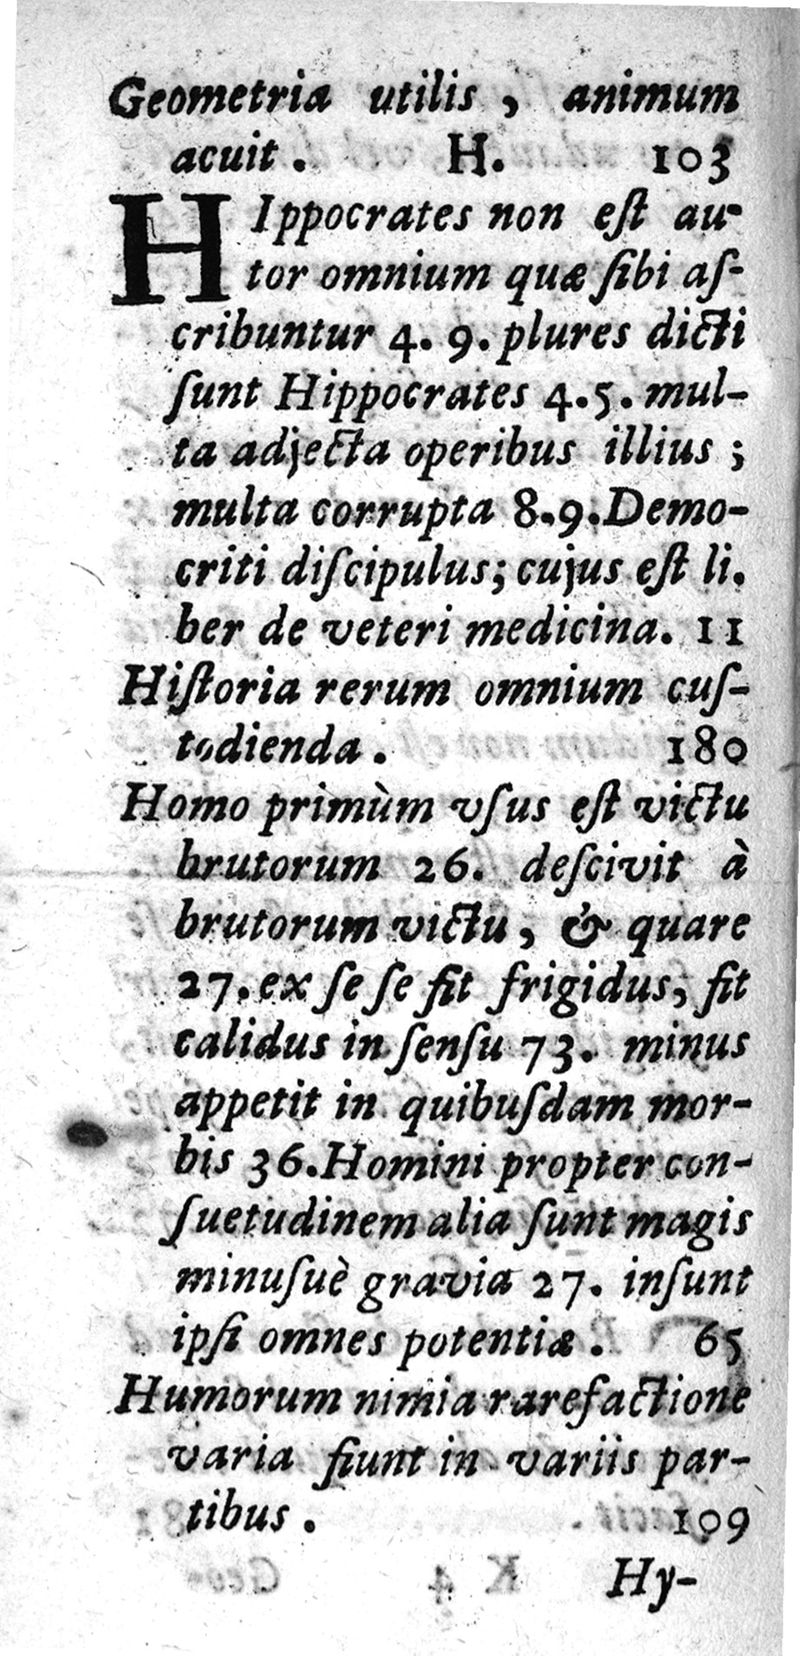 Geometria utilis, animum
acuit. H. 103
HIppocrates non eſt au-
tor omnium quæ ſibi aſ-
cribuntur 4. 9. plures dicti
ſunt Hippocrates 4.5. mul-
ta adjecta operibus illius ;
multa corrupta 8.9. Demo-
criti diſcipulus; cujus eſt li.
ber de veteri medicina. 11
Hiſtoria rerum omnium cuſ-
todienda. 180
Homo primùm vſus eſt victu
brutorum 26. deſcivit à
brutorum victu, & quare
27. ex ſe ſe fit frigidus, fit
calidus in ſenſu 73. minus
appetit in quibuſdam mor-
bis 36. Homini propter con-
ſuetudinem alia ſunt magis
minuſuè gravia 27. inſunt
ipſi omnes potentiæ. 65
Humorum nimia rarefactione
varia fiunt in variis par-
tibus. 109
Hy-